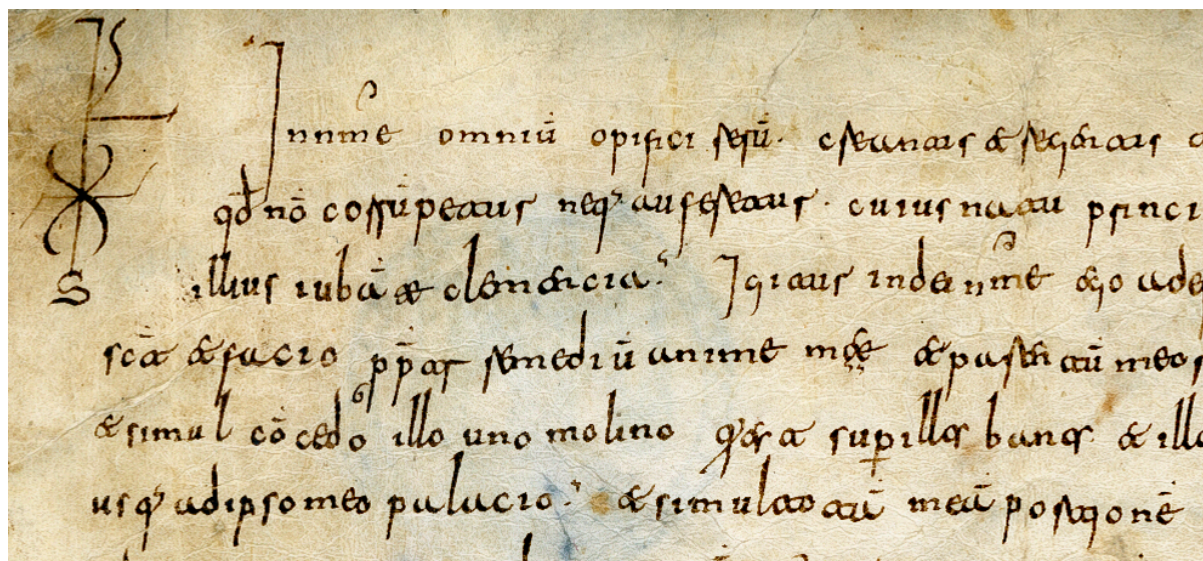 In nme omniū opifici rerū. creatoris &
qđ nō corrūpetur neq; auferetur. cuius nutu princi
illius iubāte clementia. Igitur inde nme ego ade
scē & facio ppter remediū anime mee & parentū meor
& simul cōcedo illo uno molino super illos banos & illo
usq; ad ipso meo palacio. & simul totā meā portionē